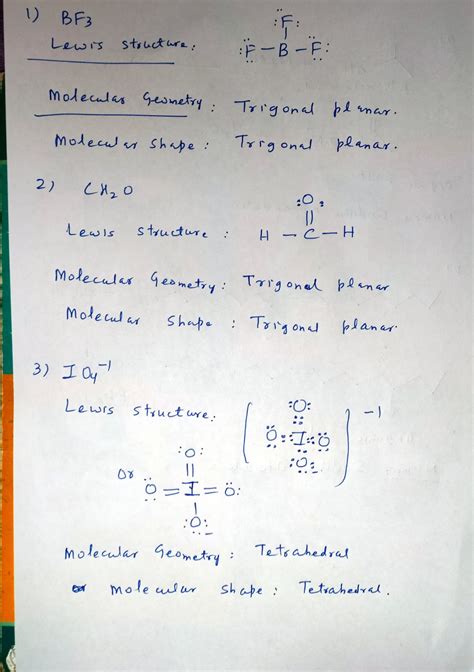 1) BF3
:F̈:
|
Lewis structure: :F̈—B—F̈:
Molecular Geometry: Trigonal planar.
Molecular shape: Trigonal planar.
2) CH2O
:O:
||
Lewis structure: H—C—H
Molecular Geometry: Trigonal planar
Molecular shape: Trigonal planar.
3) IO4⁻¹
Lewis structure: [:O: Ö::I::Ö :O:]⁻¹
:O:
||
Or Ö=I=Ö:
|
:O:
Molecular Geometry: Tetrahedral
or molecular shape: Tetrahedral.